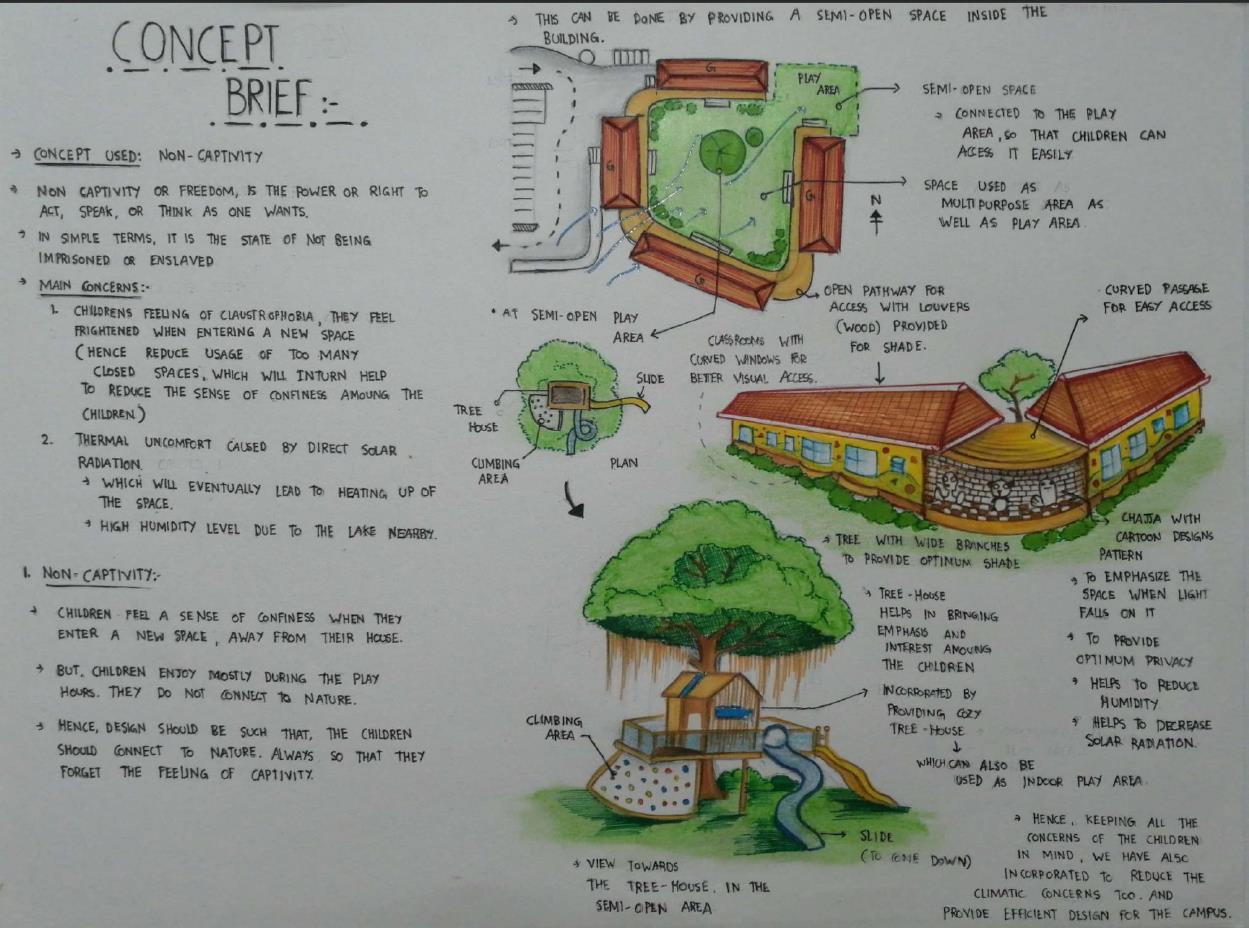 CONCEPT
BRIEF :-
→ CONCEPT USED: NON-CAPTIVITY
→ NON CAPTIVITY OR FREEDOM, IS THE POWER OR RIGHT TO
ACT, SPEAK, OR THINK AS ONE WANTS.
→ IN SIMPLE TERMS, IT IS THE STATE OF NOT BEING
IMPRISONED OR ENSLAVED
→ MAIN CONCERNS:-
1. CHILDRENS FEELING OF CLAUSTROPHOBIA, THEY FEEL
FRIGHTENED WHEN ENTERING A NEW SPACE
(HENCE REDUCE USAGE OF TOO MANY
CLOSED SPACES, WHICH WILL INTURN HELP
TO REDUCE THE SENSE OF CONFINESS AMOUNG THE
CHILDREN)
2. THERMAL UNCOMFORT CAUSED BY DIRECT SOLAR
RADIATION.
→ WHICH WILL EVENTUALLY LEAD TO HEATING UP OF
THE SPACE.
→ HIGH HUMIDITY LEVEL DUE TO THE LAKE NEARBY.
1. NON-CAPTIVITY:-
→ CHILDREN FEEL A SENSE OF CONFINESS WHEN THEY
ENTER A NEW SPACE, AWAY FROM THEIR HOUSE.
→ BUT, CHILDREN ENJOY MOSTLY DURING THE PLAY
HOURS. THEY DO NOT CONNECT TO NATURE.
→ HENCE, DESIGN SHOULD BE SUCH THAT, THE CHILDREN
SHOULD CONNECT TO NATURE. ALWAYS SO THAT THEY
FORGET THE FEELING OF CAPTIVITY.
→ THIS CAN BE DONE BY PROVIDING A SEMI-OPEN SPACE INSIDE THE
BUILDING.
G
PLAY
AREA
G
G
G
N
→ SEMI-OPEN SPACE
→ CONNECTED TO THE PLAY
AREA, SO THAT CHILDREN CAN
ACCESS IT EASILY
→ SPACE USED AS
MULTIPURPOSE AREA AS
WELL AS PLAY AREA.
→ OPEN PATHWAY FOR
ACCESS WITH LOUVERS
(WOOD) PROVIDED
FOR SHADE.
CURVED PASSAGE
FOR EASY ACCESS
* AT SEMI-OPEN PLAY
AREA
CLASSROOMS WITH
CURVED WINDOWS FOR
BETTER VISUAL ACCESS.
SLIDE
TREE
HOUSE
CLIMBING
AREA
PLAN
→ CHAJJA WITH
CARTOON DESIGNS
PATTERN
→ TO EMPHASIZE THE
SPACE WHEN LIGHT
FALLS ON IT
→ TO PROVIDE
OPTIMUM PRIVACY
→ HELPS TO REDUCE
HUMIDITY
→ HELPS TO DECREASE
SOLAR RADIATION.
→ TREE WITH WIDE BRANCHES
TO PROVIDE OPTIMUM SHADE
→ TREE-HOUSE
HELPS IN BRINGING
EMPHASIS AND
INTEREST AMOUNG
THE CHILDREN
→ INCORPORATED BY
PROVIDING COZY
TREE-HOUSE
↓
WHICH CAN ALSO BE
USED AS INDOOR PLAY AREA.
CLIMBING
AREA
→ SLIDE
(TO COME DOWN)
→ VIEW TOWARDS
THE TREE-HOUSE, IN THE
SEMI-OPEN AREA
→ HENCE, KEEPING ALL THE
CONCERNS OF THE CHILDREN
IN MIND, WE HAVE ALSO
INCORPORATED TO REDUCE THE
CLIMATIC CONCERNS TOO. AND
PROVIDE EFFICIENT DESIGN FOR THE CAMPUS.